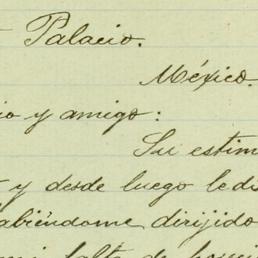 Palacio.
México.
io y amigo:
Su estim
y desde luego le di
abiéndome dirijido
mi falta de